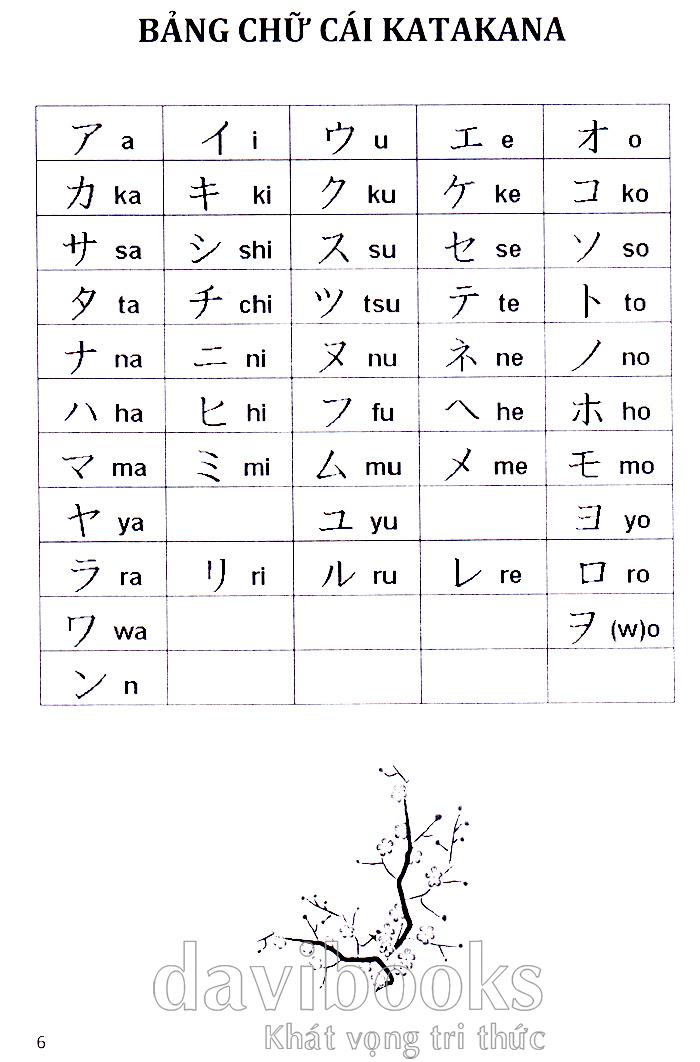 BẢNG CHỮ CÁI KATAKANA
ア a イ i ウ u エ e オ o
カ ka キ ki ク ku ケ ke コ ko
サ sa シ shi ス su セ se ソ so
タ ta チ chi ツ tsu テ te ト to
ナ na ニ ni ヌ nu ネ ne ノ no
ハ ha ヒ hi フ fu ヘ he ホ ho
マ ma ミ mi ム mu メ me モ mo
ヤ ya ユ yu ヨ yo
ラ ra リ ri ル ru レ re ロ ro
ワ wa ヲ (w)o
ン n
davibooks
Khát vọng tri thức
6